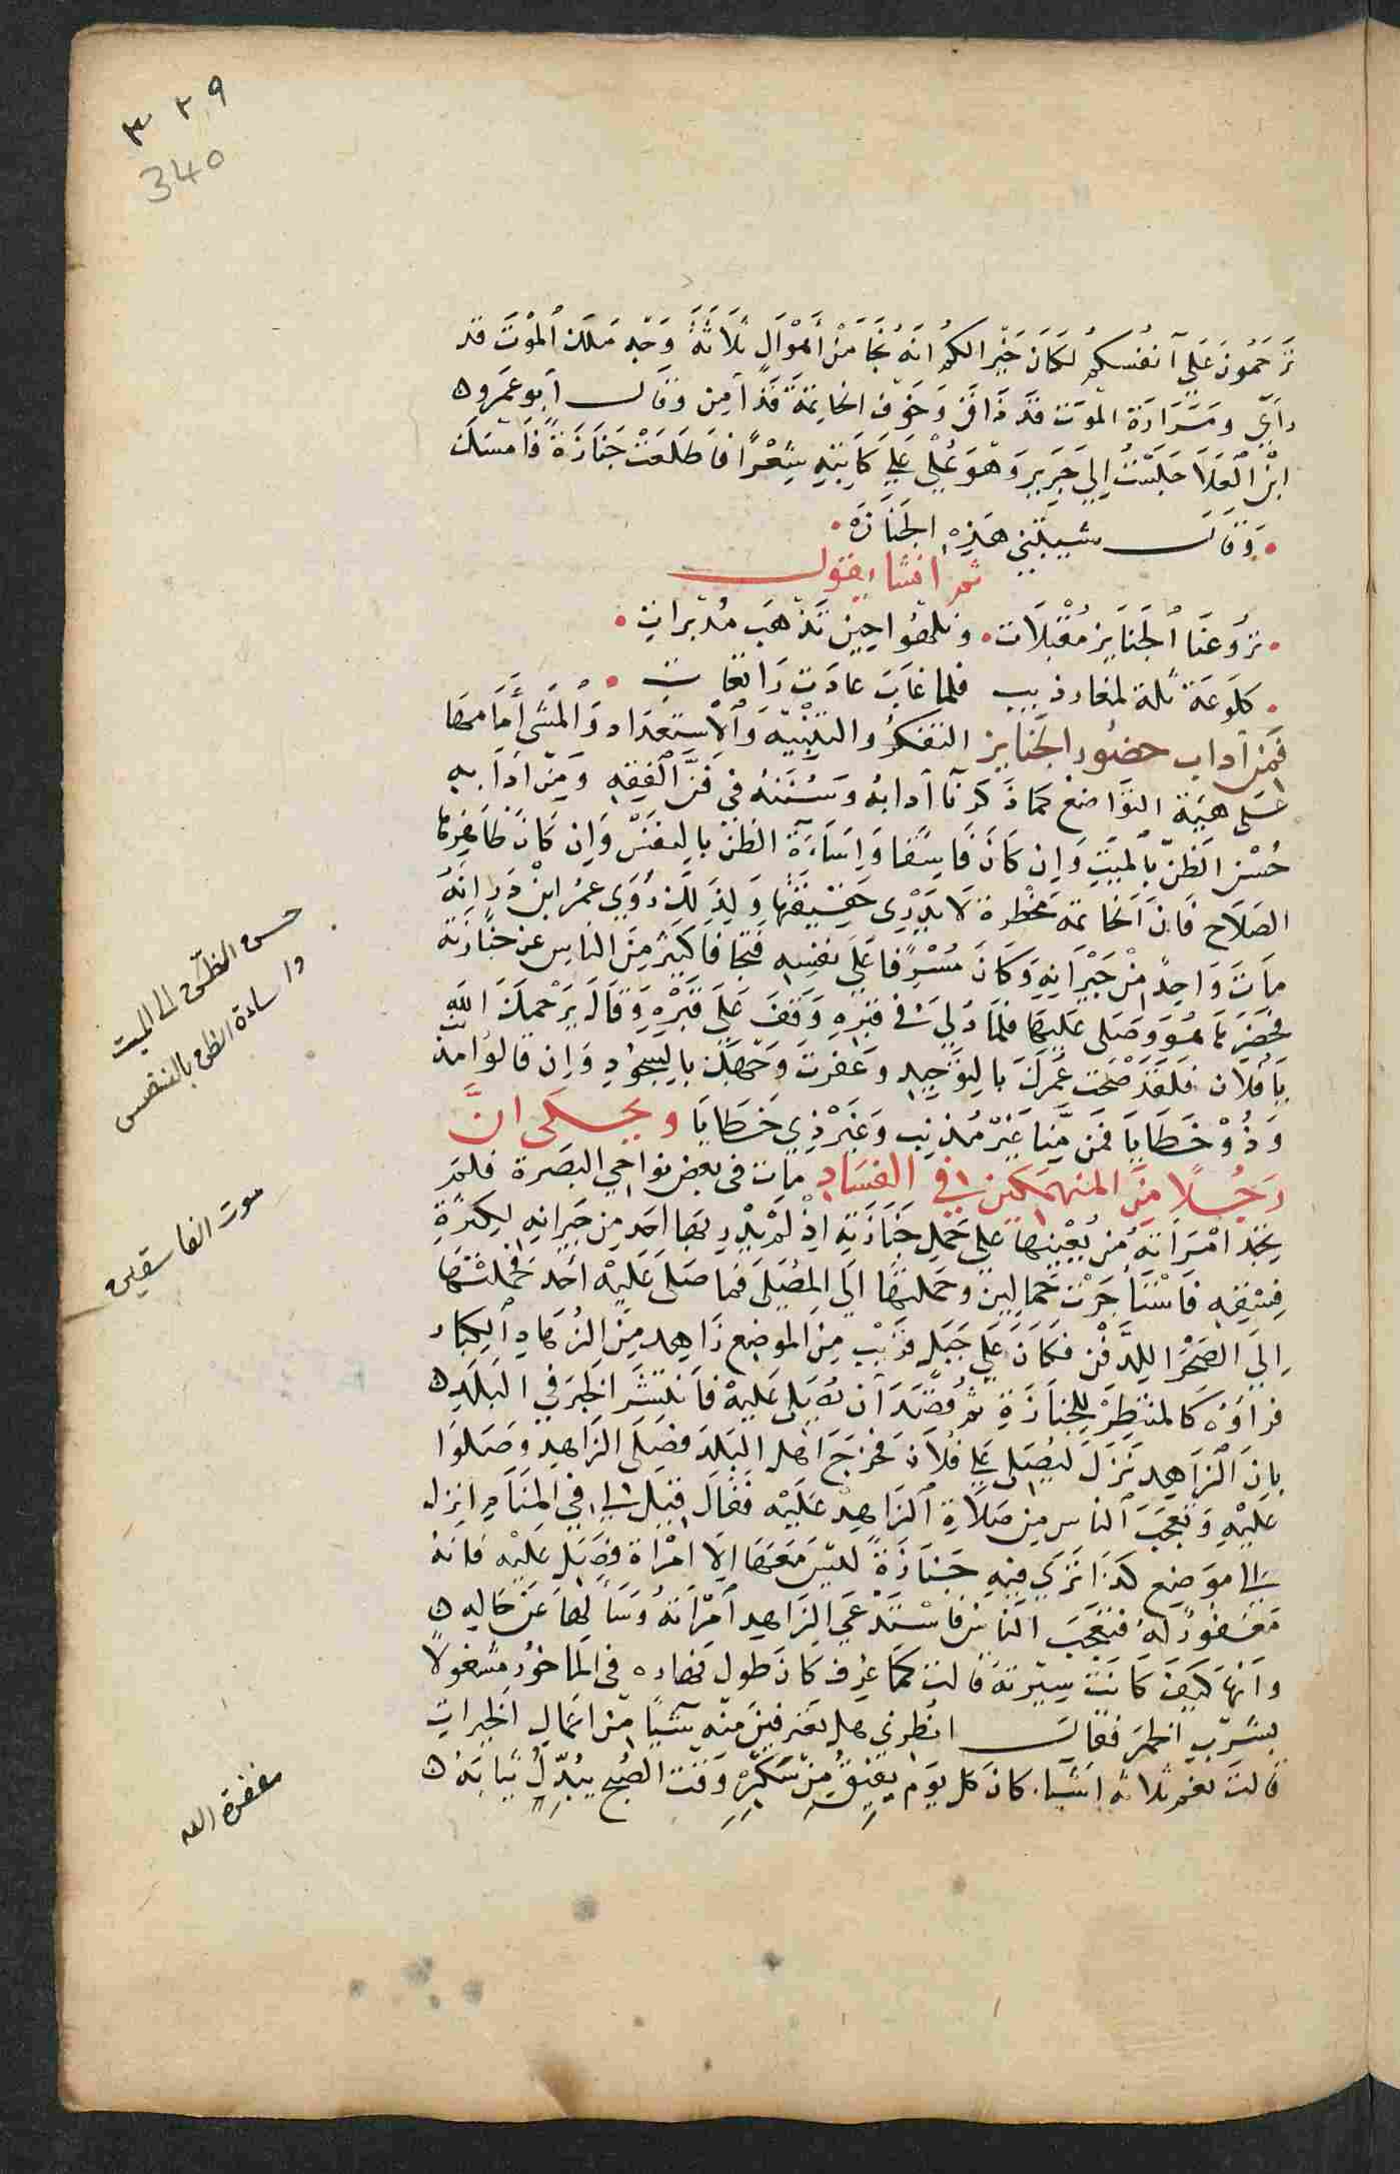 ٣٢٩
340
ترحمون على انفسكم لكان خيرا لكم انه نجا من أهوال ثلاثة وجه ملك الموت قد
رأى ومرارة الموت قد ذاق وخوف الخاتمة قد أمن وقال ابو عمرو
ابن العلا جلست إلى جرير وهو يملي على كاتبه شعرا فاطلعت جنازة فامسك
وقال شيبتني هذه الجنازة
ثم انشا يقول
تروعنا الجنايز مقبلات ونلهوا حين تذهب مدبرات
كلوعة ثلة لمغار ذيب فلما غاب عادت راتعات
فمن آداب حضور الجنايز التفكر والتنبيه والاستعداد والمشى أمامها
على هيئة التواضع كما ذكرنا آدابه وسننه في فن الفقه ومن آدابه
حسن الظن بالميت وإن كان فاسقا وإساءة الظن بالنفس وإن كان ظاهرها
الصلاح فان الخاتمة مخطرة لا يدرى حقيقتها ولذلك روى عمر ابن ذر انه
مات واحد من جيرانه وكان مسرفا على نفسه فتجافا كثير من الناس عن جنازته
فحضرها هو وصلى عليها فلما دلى فى قبره وقف على قبره وقال يرحمك الله
يا أبا فلان فلقد صحبت عمرك بالتوحيد وعفرت وجهك بالسجود وإن قالوا مذنب
وذو خطايا فمن منا غير مذنب وغير ذي خطايا ويحكى ان
رجلا من المنهمكين فى الفساد مات فى بعض نواحي البصرة فلم
تجد امراته من يعينها على حمل جنازته اذ لم يدر بها احد من جيرانه لكثرة
فسقه فاستأجرت حمالين وحملتها الى المصلى فما صلى عليه احد فحملتها
إلى الصحرا للدفن فكان على جبل قريب من الموضع زاهد من الزهاد الكبار
فراوه كالمنتظر للجنازة ثم قصد أن يصلى عليه فانتشر الخبر في البلد
بان الزاهد نزل ليصلى على فلان فخرج اهل البلد فصلى الزاهد وصلوا
عليه وتعجب الناس من صلاة الزاهد عليه فقال قيل لي في المنام انزل
الى موضع كذا ترى فيه جنازة ليس معها الا امراة فصل عليه فانه
مغفور له فتعجب الناس فاستدعى الزاهد امراته وسالها عن حاله
وانها كيف كانت سيرته قالت كما عرف كان طول نهاره في الماخور مشغولا
بشرب الخمر فقال انظري هل تعرفين منه شيئا من اعمال الخيرات
قالت نعم ثلاثة اشيا كان كل يوم يفيق من سكره وقت الصبح يبدل ثيابه
حسن الظن الى الميت
واساءة الظن بالنفس
موت الفاسقين
مغفرة الله